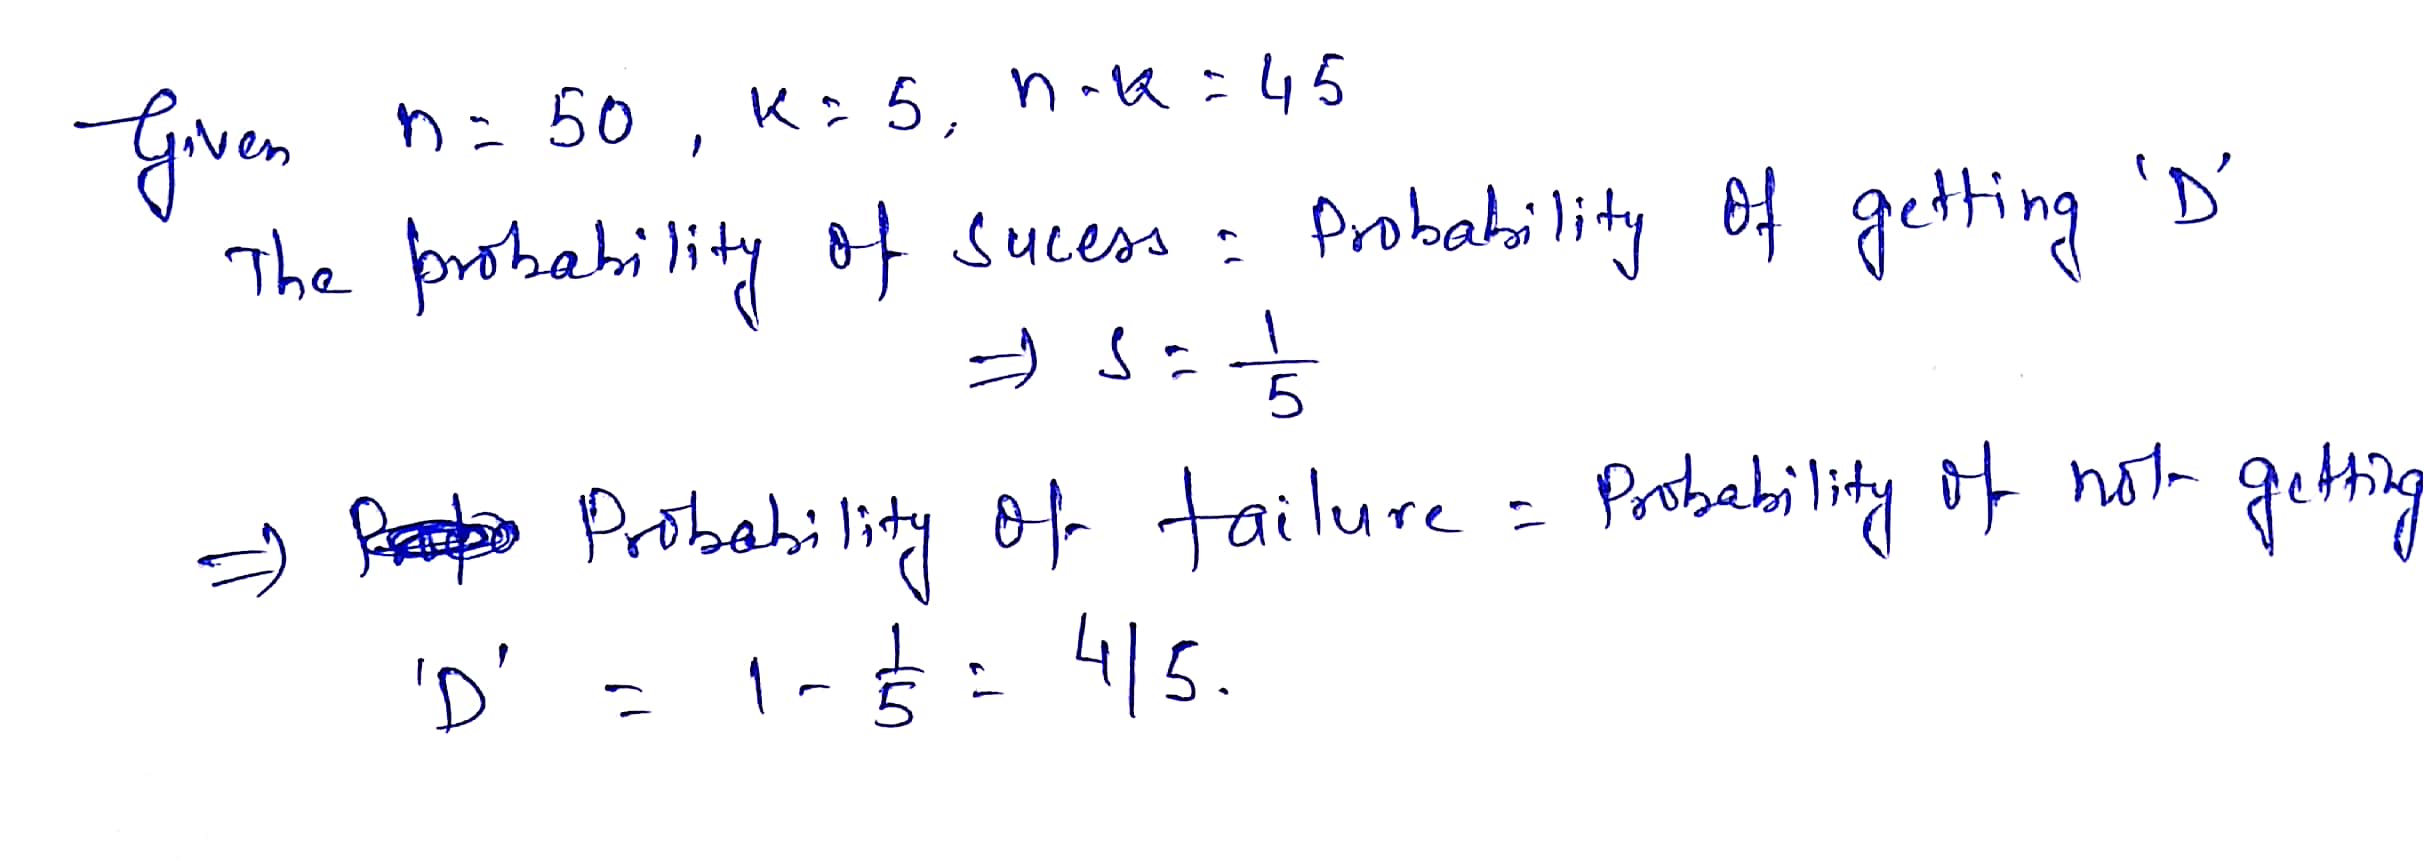 Given n = 50, K = 5, n-k = 45
The probability of sucess = Probability of getting 'D'
⇒ S = 1/5
⇒ Probability of failure = Probability of not getting
'D' = 1 - 1/5 = 4/5.